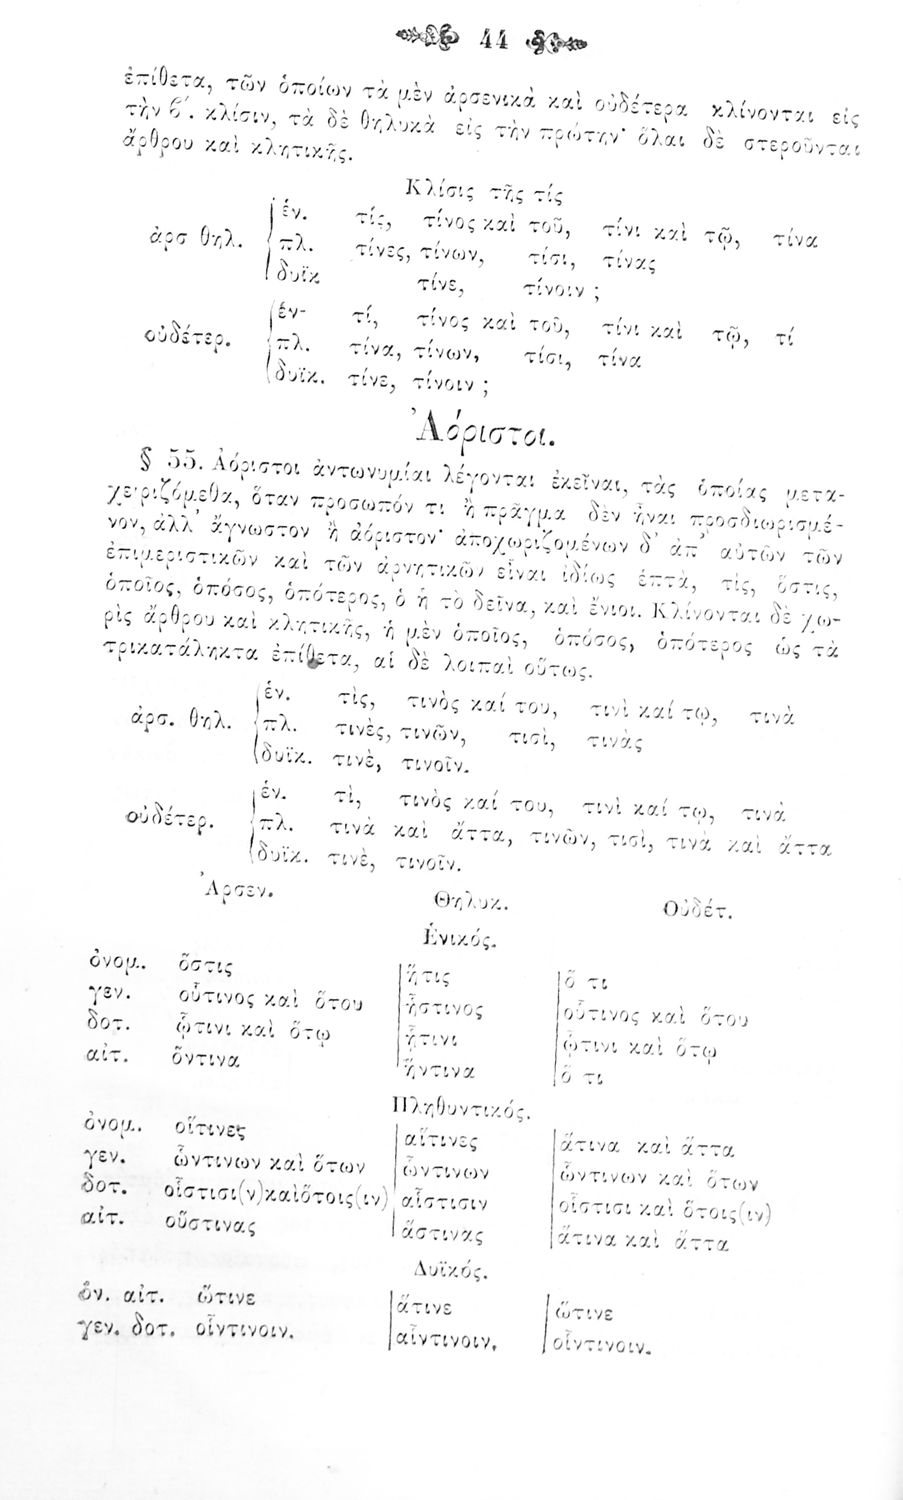 44
ἐπίθετα, τῶν ὁποίων τὰ μὲν ἀρσενικὰ καὶ οὐδέτερα κλίνονται εἰς
τὴν β΄. κλίσιν, τὰ δὲ θηλυκὰ εἰς τὴν πρώτην· ὅλαι δὲ στεροῦνται
ἄρθρου καὶ κλητικῆς.
Κλίσις τῆς τίς
ἑν. τίς, τίνος καὶ τοῦ, τίνι καὶ τῷ, τίνα
ἀρσ θηλ. πλ. τίνες, τίνων, τίσι, τίνας
δυϊκ τίνε, τίνοιν ;
ἑν- τί, τίνος καὶ τοῦ, τίνι καὶ τῷ, τί
οὐδέτερ. πλ. τίνα, τίνων, τίσι, τίνα
δυϊκ. τίνε, τίνοιν ;
Ἀόριστοι.
§ 55. Ἀόριστοι ἀντωνυμίαι λέγονται ἐκεῖναι, τὰς ὁποίας μετα-
χειριζόμεθα, ὅταν προσωπόν τι ἢ πρᾶγμα δὲν ἦναι προσδιωρισμέ-
νον, ἀλλ᾽ ἄγνωστον ἢ ἀόριστον· ἀποχωριζομένων δ᾽ ἀπ᾽ αὐτῶν τῶν
ἐπιμεριστικῶν καὶ τῶν ἀρνητικῶν εἶναι ἰδίως ἑπτὰ, τὶς, ὅστις,
ὁποῖος, ὁπόσος, ὁπότερος, ὁ ἡ τὸ δεῖνα, καὶ ἔνιοι. Κλίνονται δὲ χω-
ρὶς ἄρθρου καὶ κλητικῆς, ἡ μὲν ὁποῖος, ὁπόσος, ὁπότερος ὡς τὰ
τρικατάληκτα ἐπίθετα, αἱ δὲ λοιπαὶ οὕτως.
ἑν. τὶς, τινὸς καί του, τινὶ καί τῳ, τινὰ
ἀρσ. θηλ. πλ. τινὲς, τινῶν, τισὶ, τινὰς
δυϊκ. τινὲ, τινοῖν.
ἑν. τὶ, τινὸς καί του, τινὶ καί τῳ, τινά
οὐδέτερ. πλ. τινὰ καὶ ἄττα, τινῶν, τισὶ, τινὰ καὶ ἄττα
δυϊκ. τινὲ, τινοῖν.
Ἀρσεν. Θηλυκ. Οὐδέτ.
Ἑνικός.
ὀνομ. ὅστις ἥτις ὅ τι
γεν. οὗτινος καὶ ὅτου ἧστινος οὗτινος καὶ ὅτου
δοτ. ᾧτινι καὶ ὅτῳ ᾗτινι ᾧτινι καὶ ὅτῳ
αἰτ. ὅντινα ἥντινα ὅ τι
Πληθυντικός.
ὀνομ. οἵτινες αἵτινες ἅτινα καὶ ἅττα
γεν. ὧντινων καὶ ὅτων ὧντινων ὧντινων καὶ ὅτων
δοτ. οἷστισι(ν)καὶὅτοις(ιν) αἷστισιν οἷστισι καὶ ὅτοις(ιν)
αἰτ. οὕστινας ἅστινας ἅτινα καὶ ἅττα
Δυϊκός.
ὀν. αἰτ. ὥτινε ἅτινε ὥτινε
γεν. δοτ. οἷντινοιν. αἷντινοιν. οἷντινοιν.